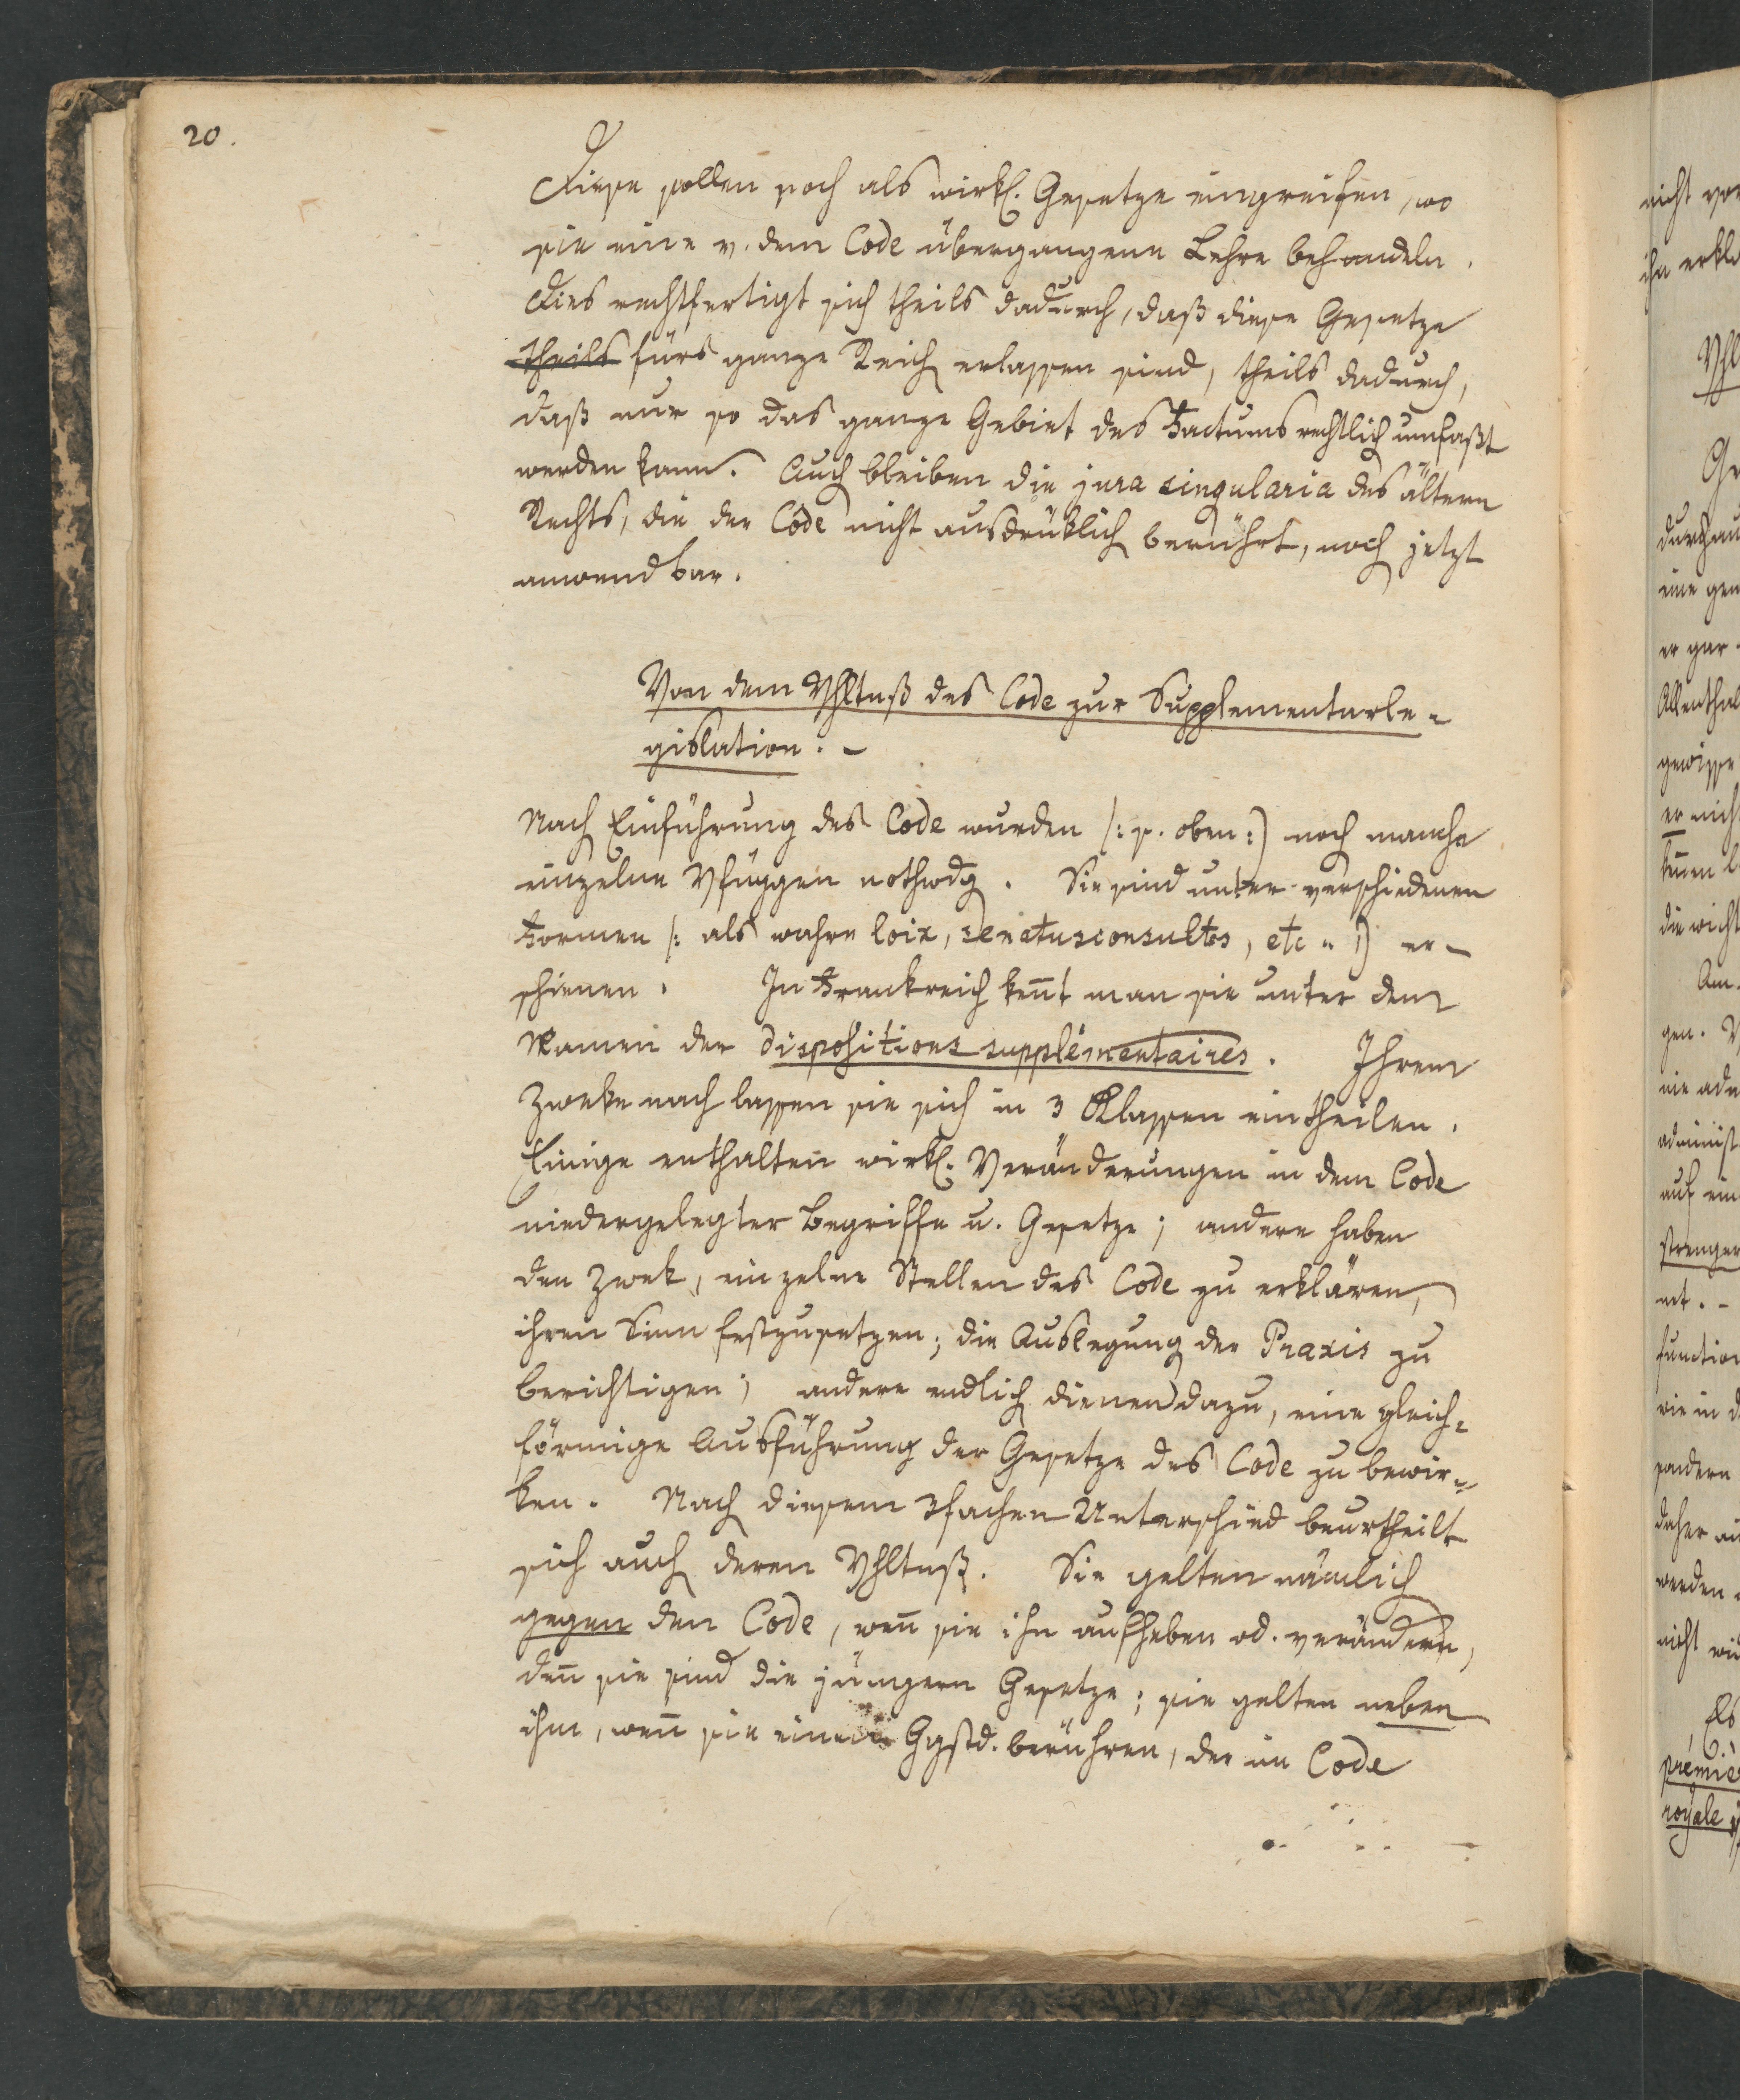 20.
Diese sollen noch als wirkl. Gesetze eingreifen, wo
sie eine v. dem Code übergangene Lehre behandeln.
Dies rechtfertigt sich theils dadurch, daß diese Gesetze
theils fürs ganze Reich erlassen sind, theils dadurch,
daß nur so das ganze Gebiet des Factums rechtlich umfaßt
werden kann. Auch bleiben die jura singularia des ältern
Rechts, die der Code nicht ausdrüklich berührt, noch jetzt
anwendbar.
Von dem Vhltnß des Code zur Supplementarle-
gislation. -
Nach Einführung des Code wurden (: s. oben :) noch manche
einzelne Vfüggen nothwdg. Sie sind unter verschiedenen
Formen (: als wahre loix, senatusconsultes, etc :) er-
schienen. In Frankreich kent man sie unter dem
Namen der dispositions supplémentaires. Ihrem
Zweke nach lassen sie sich in 3 Klassen eintheilen.
Einige enthalten wirkl. Veränderungen in dem Code
niedergelegter Begriffe u. Gesetze; andere haben
den Zwek, einzelne Stellen des Code zu erklären,
ihren Sinn festzusetzen; die Auslegung der Praxis zu
berichtigen; andere endlich dienen dazu, eine gleich-
förmige Ausführung der Gesetze des Code zu bewir-
ken. Nach diesem 3fachen Unterschied beurtheilt
sich auch deren Vhltnß. Sie gelten nämlich
gegen den Code, wen sie ihn aufheben od. verändern,
den sie sind die jüngern Gesetze; sie gelten neben
ihm, wen sie einen Ggstd. berühren, der im Code
nicht
ihn
Vhl
eine
er gar
gewisse
er nich
die wicht
gen.
auf ein
function
wie in d
sondern
daher
werden
nicht
Es
royale